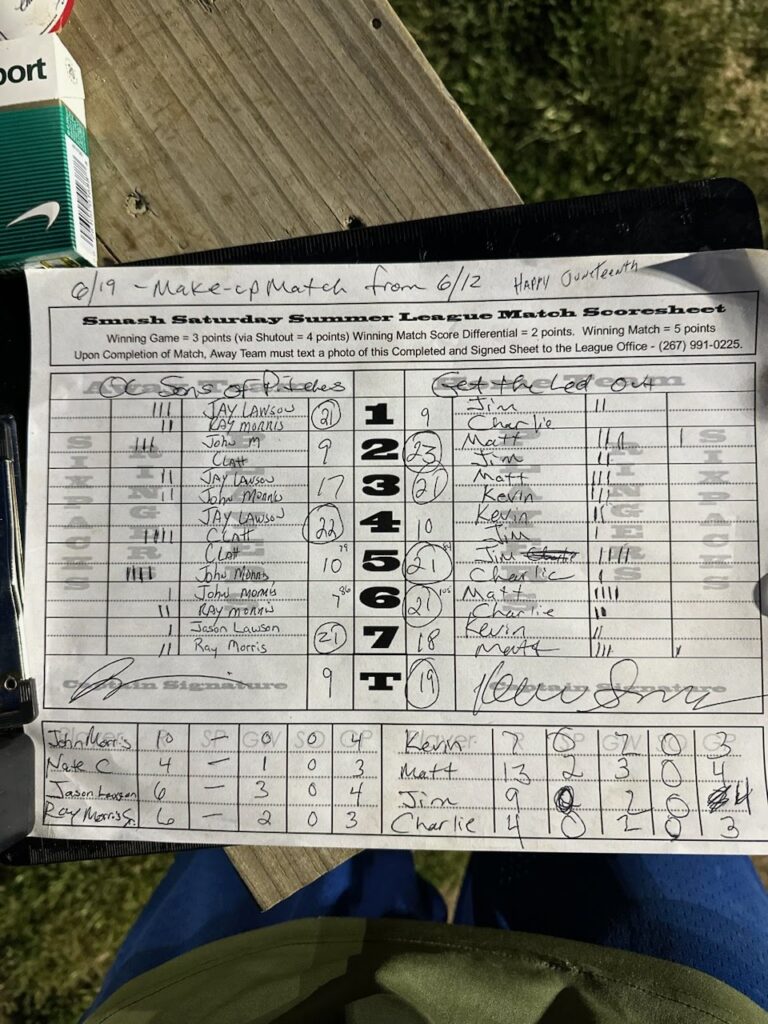 port
6/19 - Make-up Match from 6/12 HAPPY Juneteenth
Smash Saturday Summer League Match Scoresheet
Winning Game = 3 points (via Shutout = 4 points) Winning Match Score Differential = 2 points. Winning Match = 5 points
Upon Completion of Match, Away Team must text a photo of this Completed and Signed Sheet to the League Office - (267) 991-0225.
OC Sons of Pitches Get the Led out
III JAY LAWSON 21 1 9 Jim II
II RAY MORRIS Charlie
III John M 9 2 23 Matt IIII I
Clatt Jim II
II JAY LAWSON 17 3 21 Matt III
II John Morris Kevin III
JAY LAWSON 22 4 10 Kevin II
IIII Clatt Jim I
Clatt 10 79 5 21 84 Jim IIII
IIII John Morris Charlie I
I John Morris 7 86 6 21 105 Matt IIII
II RAY MORRIS Charlie II
I Jason Lawson 21 7 18 Kevin II
II Ray Morris Matt III I
Captain Signature 9 T 19 Captain Signature
John Morris 10 - 0 0 4 Kevin 7 0 2 0 3
Nate C 4 - 1 0 3 Matt 13 2 3 0 4
Jason Lawson 6 - 3 0 4 Jim 9 0 2 0 4
Ray Morris Sr. 6 - 2 0 3 Charlie 4 0 2 0 3